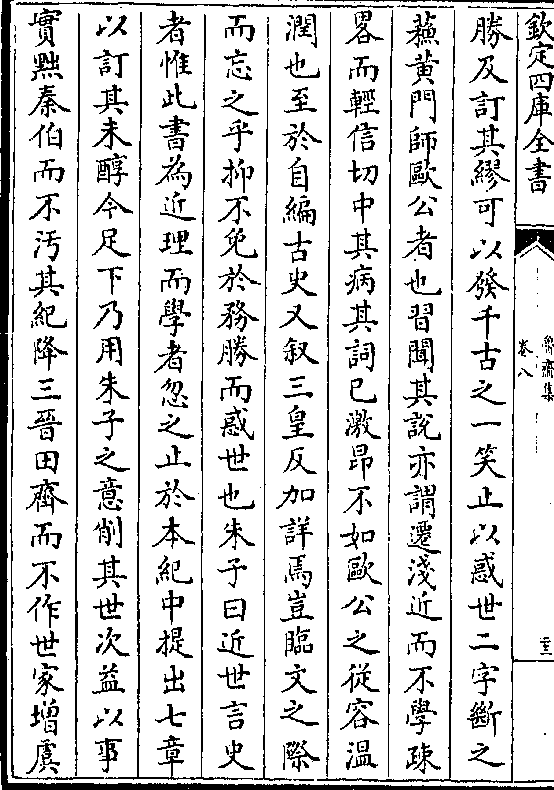 欽定四庫全書
魯齋集
卷八
勝及訂其繆可以發千古之一笑止以惑世二字斷之
蘓黄門師歐公者也習聞其說亦謂遷淺近而不學疎
畧而輕信切中其病其詞已激昂不如歐公之從容温
潤也至於自編古史又叙三皇反加詳焉豈臨文之際
而忘之乎抑不免於務勝而惑世也朱子曰近世言史
者惟此書為近理而學者忽之止於本紀中提出七章
以訂其未醇今足下乃用朱子之意削其世次益以事
實黜秦伯而不汚其紀降三晉田齊而不作世家增虞